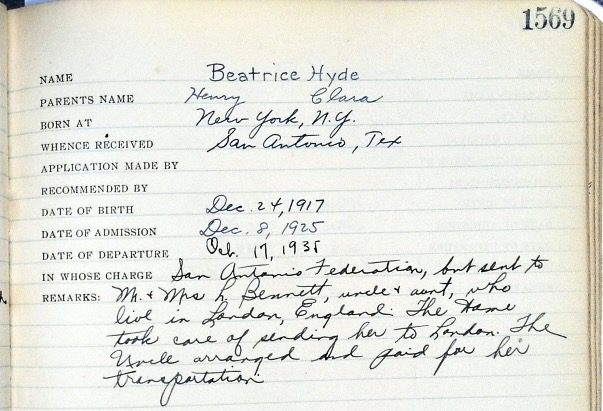 1569
NAME Beatrice Hyde
PARENTS NAME Henry Clara
BORN AT New York, N.Y.
WHENCE RECEIVED San Antonio, Tex
APPLICATION MADE BY
RECOMMENDED BY
DATE OF BIRTH Dec. 24, 1917
DATE OF ADMISSION Dec. 8, 1925
DATE OF DEPARTURE 17, 193
IN WHOSE CHARGE San Antonio Federation, but sent to
REMARKS: Mr. + Mrs L. Bennett, uncle + aunt, who
live in London, England. The Home
took care of sending her to London. The
Uncle arranged and paid for her
transportation.